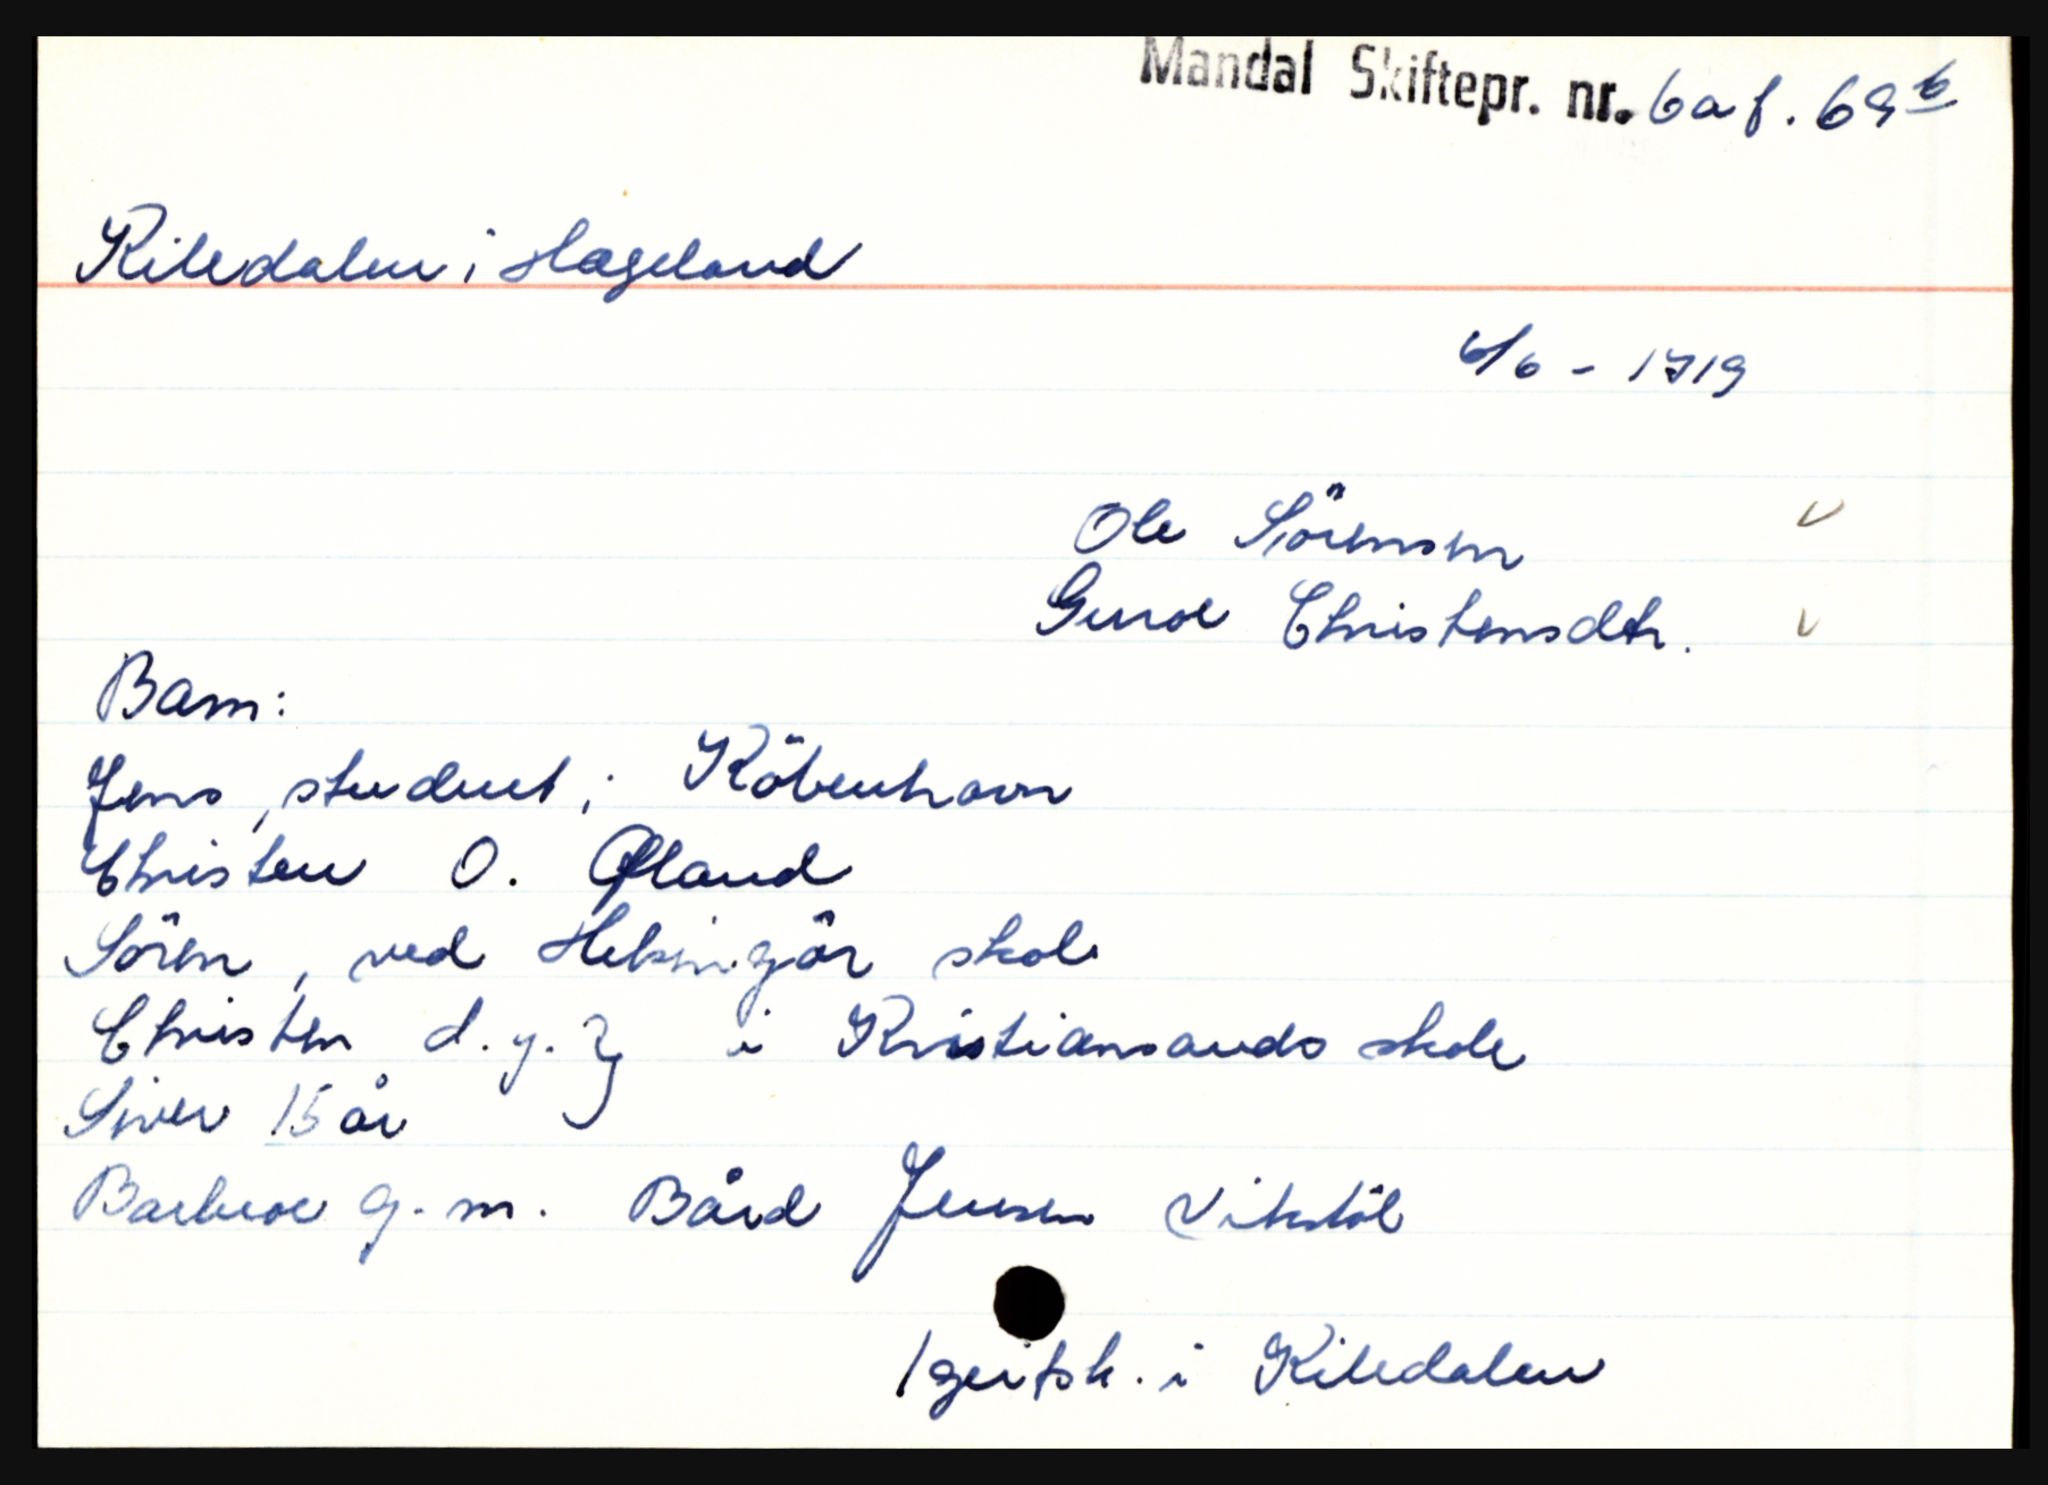 Mandal Skiftepr. nr. 6a f. 69b
Kiledalen i Hægeland
6/6 - 1719
Ole Sörensen
Guroe Christensdtr.
Barn:
Jens, student i Köbenhavn
Christen O. Øland
Sören, ved Helsingör skole
Christen d.y. i Kristiansands skole
Siver 15 år
Barbroe g. m. Bård Jensen Vikstöl
1 geitsk. i Kiledalen